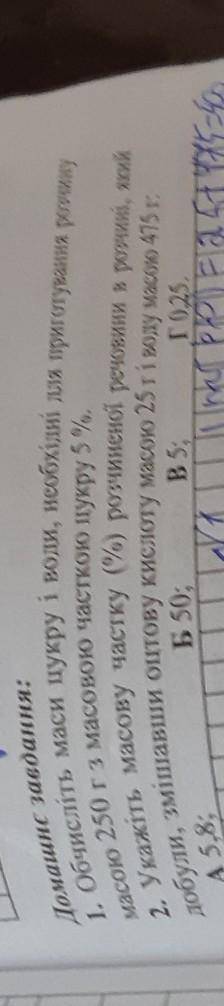 Домашнє завдання:
1. Обчисліть маси цукру і води, необхідні для приготування розчину
масою 250 г з масовою часткою цукру 5 %.
2. Укажіть масову частку (%) розчиненої речовини в розчині, який
добули, змішавши оцтову кислоту масою 25 г і воду масою 475 г:
А 5,8; Б 50; В 5; Г 0,25.